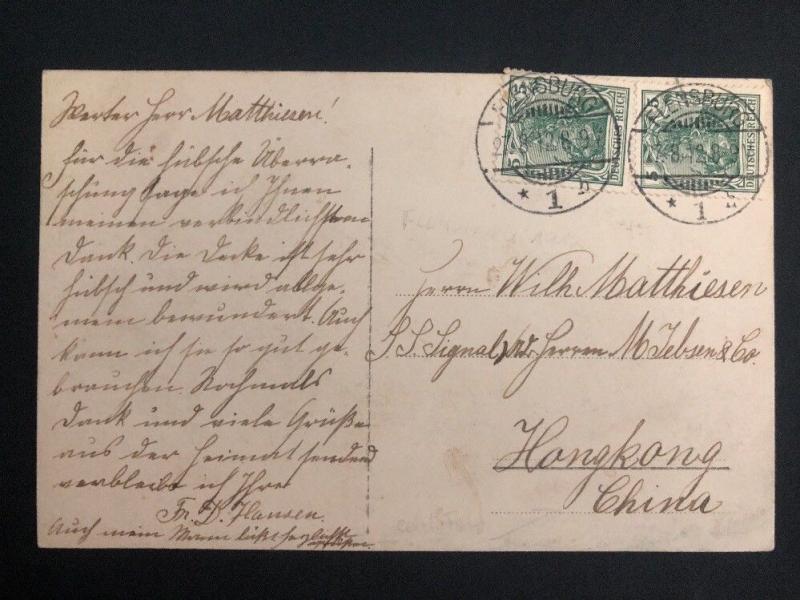 Werter Herr Matthiesen!
für die hübsche Überra-
schung sage ich Ihnen
meinen verbindlichsten
Dank. Die Decke ist sehr
hübsch und wird allge-
mein bewundert. Auch
kann ich sie so gut ge-
brauchen. Nochmals
Dank und viele Grüße
aus der Heimat sendend
verbleibe ich Ihre
Fr. D. Hansen.
Auch mein Mann läßt herzlichst grüßen.
FLENSBURG
* 1 h
DEUTSCHES REICH
5
FLENSBURG
* 1 h
DEUTSCHES REICH
5
Herrn Wilh Matthiesen
S S Signal, Adr. Herren M Jebsen & Co.
Hongkong
China